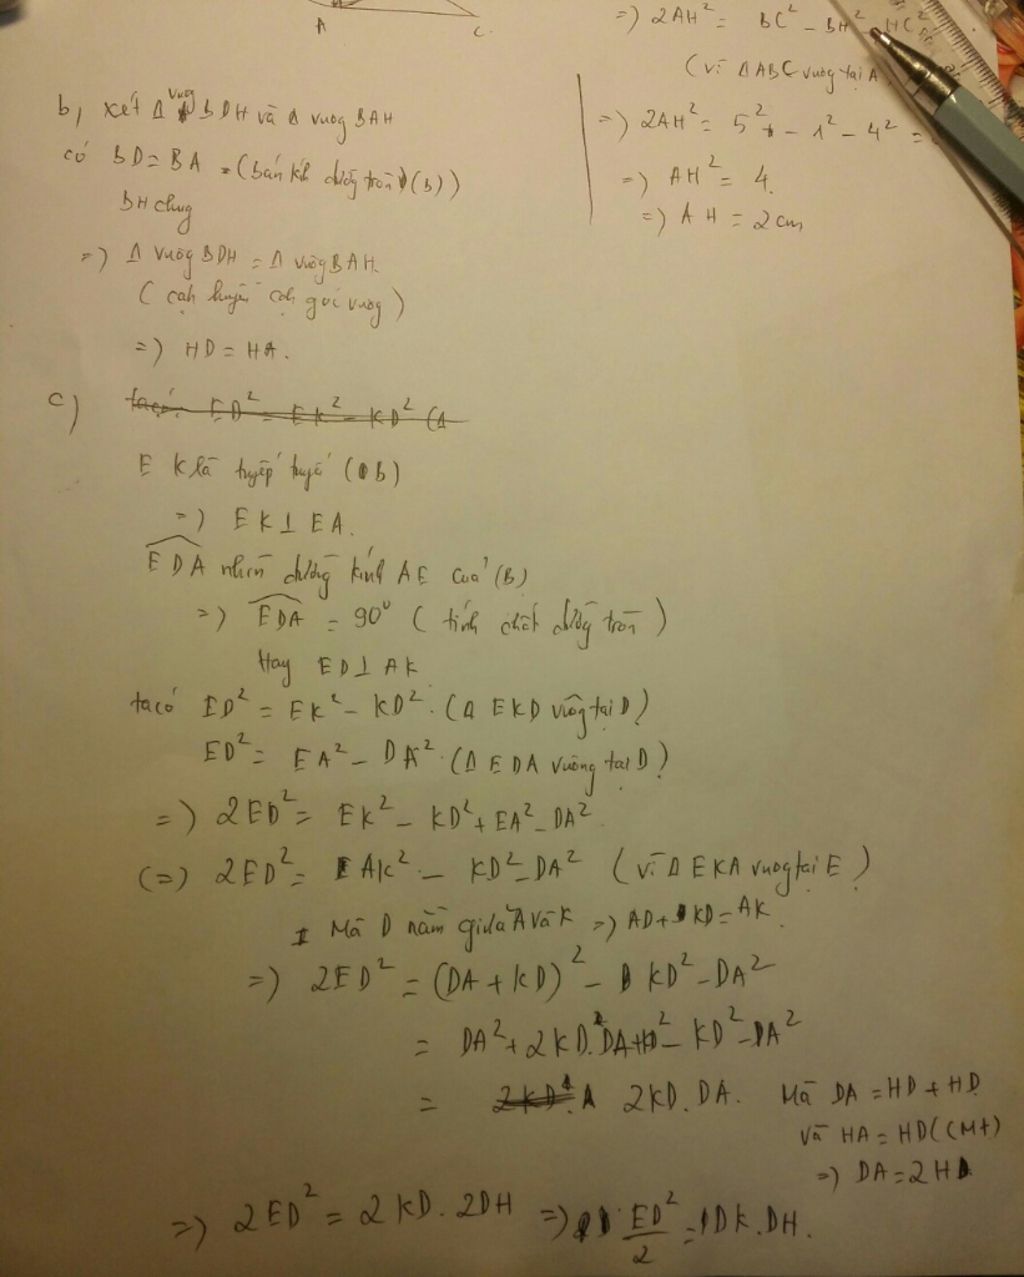 A
C
=) 2AH² = BC² - BH² - HC²
(vì Δ ABC vuog tại A
=) 2AH² = 5² - 1² - 4² =
=) AH² = 4.
=) AH = 2 cm
b, xét Δ vuog BDH và Δ vuog BAH
có BD = BA = (bán kính đường tròn (B))
BH chug
=) Δ vuôg BDH = Δ vuôg BAH.
(cạh huyền cạh góc vuog)
=) HD = HA.
c) ta có ED² = EK² - KD² (Δ
EK là tuyếp tuyế (B)
=) EK ⊥ EA.
EDA nhìn đường kính AE của (B)
=) EDA = 90° (tính chất đường tròn)
Hay ED ⊥ AK
ta có ED² = EK² - KD². (Δ EKD vuôg tại D)
ED² = EA² - DA². (Δ EDA vuông tại D)
=) 2ED² = EK² - KD² + EA² - DA²
(=) 2ED² = AK² - KD² - DA² (vì Δ EKA vuog tại E)
Mà D nằm giữa A và K =) AD + KD = AK.
=) 2ED² = (DA + KD)² - KD² - DA²
= DA² + 2KD.DA + KD² - KD² - DA²
= 2KD.DA. Mà DA = HD + HD
và HA = HD ((Mt)
=) DA = 2HD
=) 2ED² = 2KD.2DH =) ED²/2 = DK.DH.